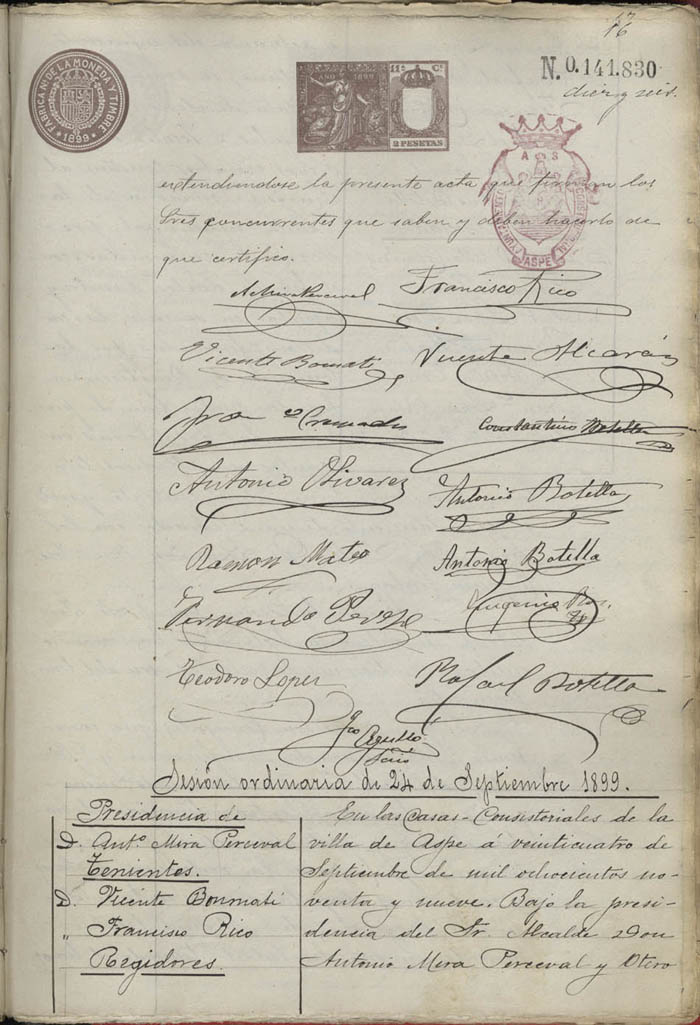 16
FABRICA Nl DE LA MONEDA Y TIMBRE
1899
AÑO 1899
11ª Cª
2 PESETAS
N. 0.141.830
diez y seis.
AYUNTAMIENTO
ASPE
extendiendose la presente acta que firman los
Sres concurrentes que saben y deben hacerlo de
que certifico.
A. Mira Perceval
Francisco Rico
Vicente Bonmati
Vicente Alcaráz
Fran co Cremades
Constantino Botella
Antonio Olivares
Antonio Botella
Ramon Mateo
Antonio Botella
Fernando Perez
Eugenio
Teodoro Lopez
Rafael Botella
Agulló
Srio
Sesión ordinaria de 24 de Septiembre 1899.
Presidencia de
D. Antº Mira Perceval
Tenientes.
D. Vicente Bonmati
" Francisco Rico
Regidores.
En las Casas-Consistoriales de la
villa de Aspe á veinticuatro de
Septiembre de mil ochocientos no-
venta y nueve. Bajo la presi-
dencia del Sr. Alcalde Don
Antonio Mira Perceval y Otero